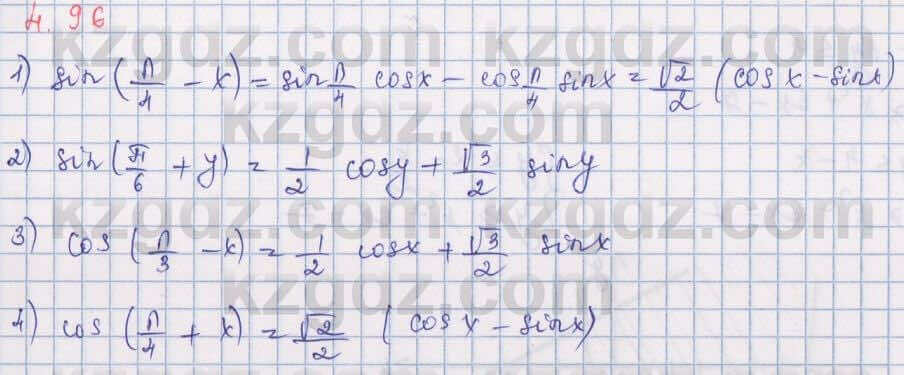 4.96
1) sin(π/4 - x) = sin π/4 cosx - cos π/4 sinx = √2/2 (cosx - sinx)
2) sin(π/6 + y) = 1/2 cosy + √3/2 siny
3) cos(π/3 - x) = 1/2 cosx + √3/2 sinx
4) cos(π/4 + x) = √2/2 (cosx - sinx)
kzgdz.com
kzgdz.com
kzgdz.com
kzgdz.com